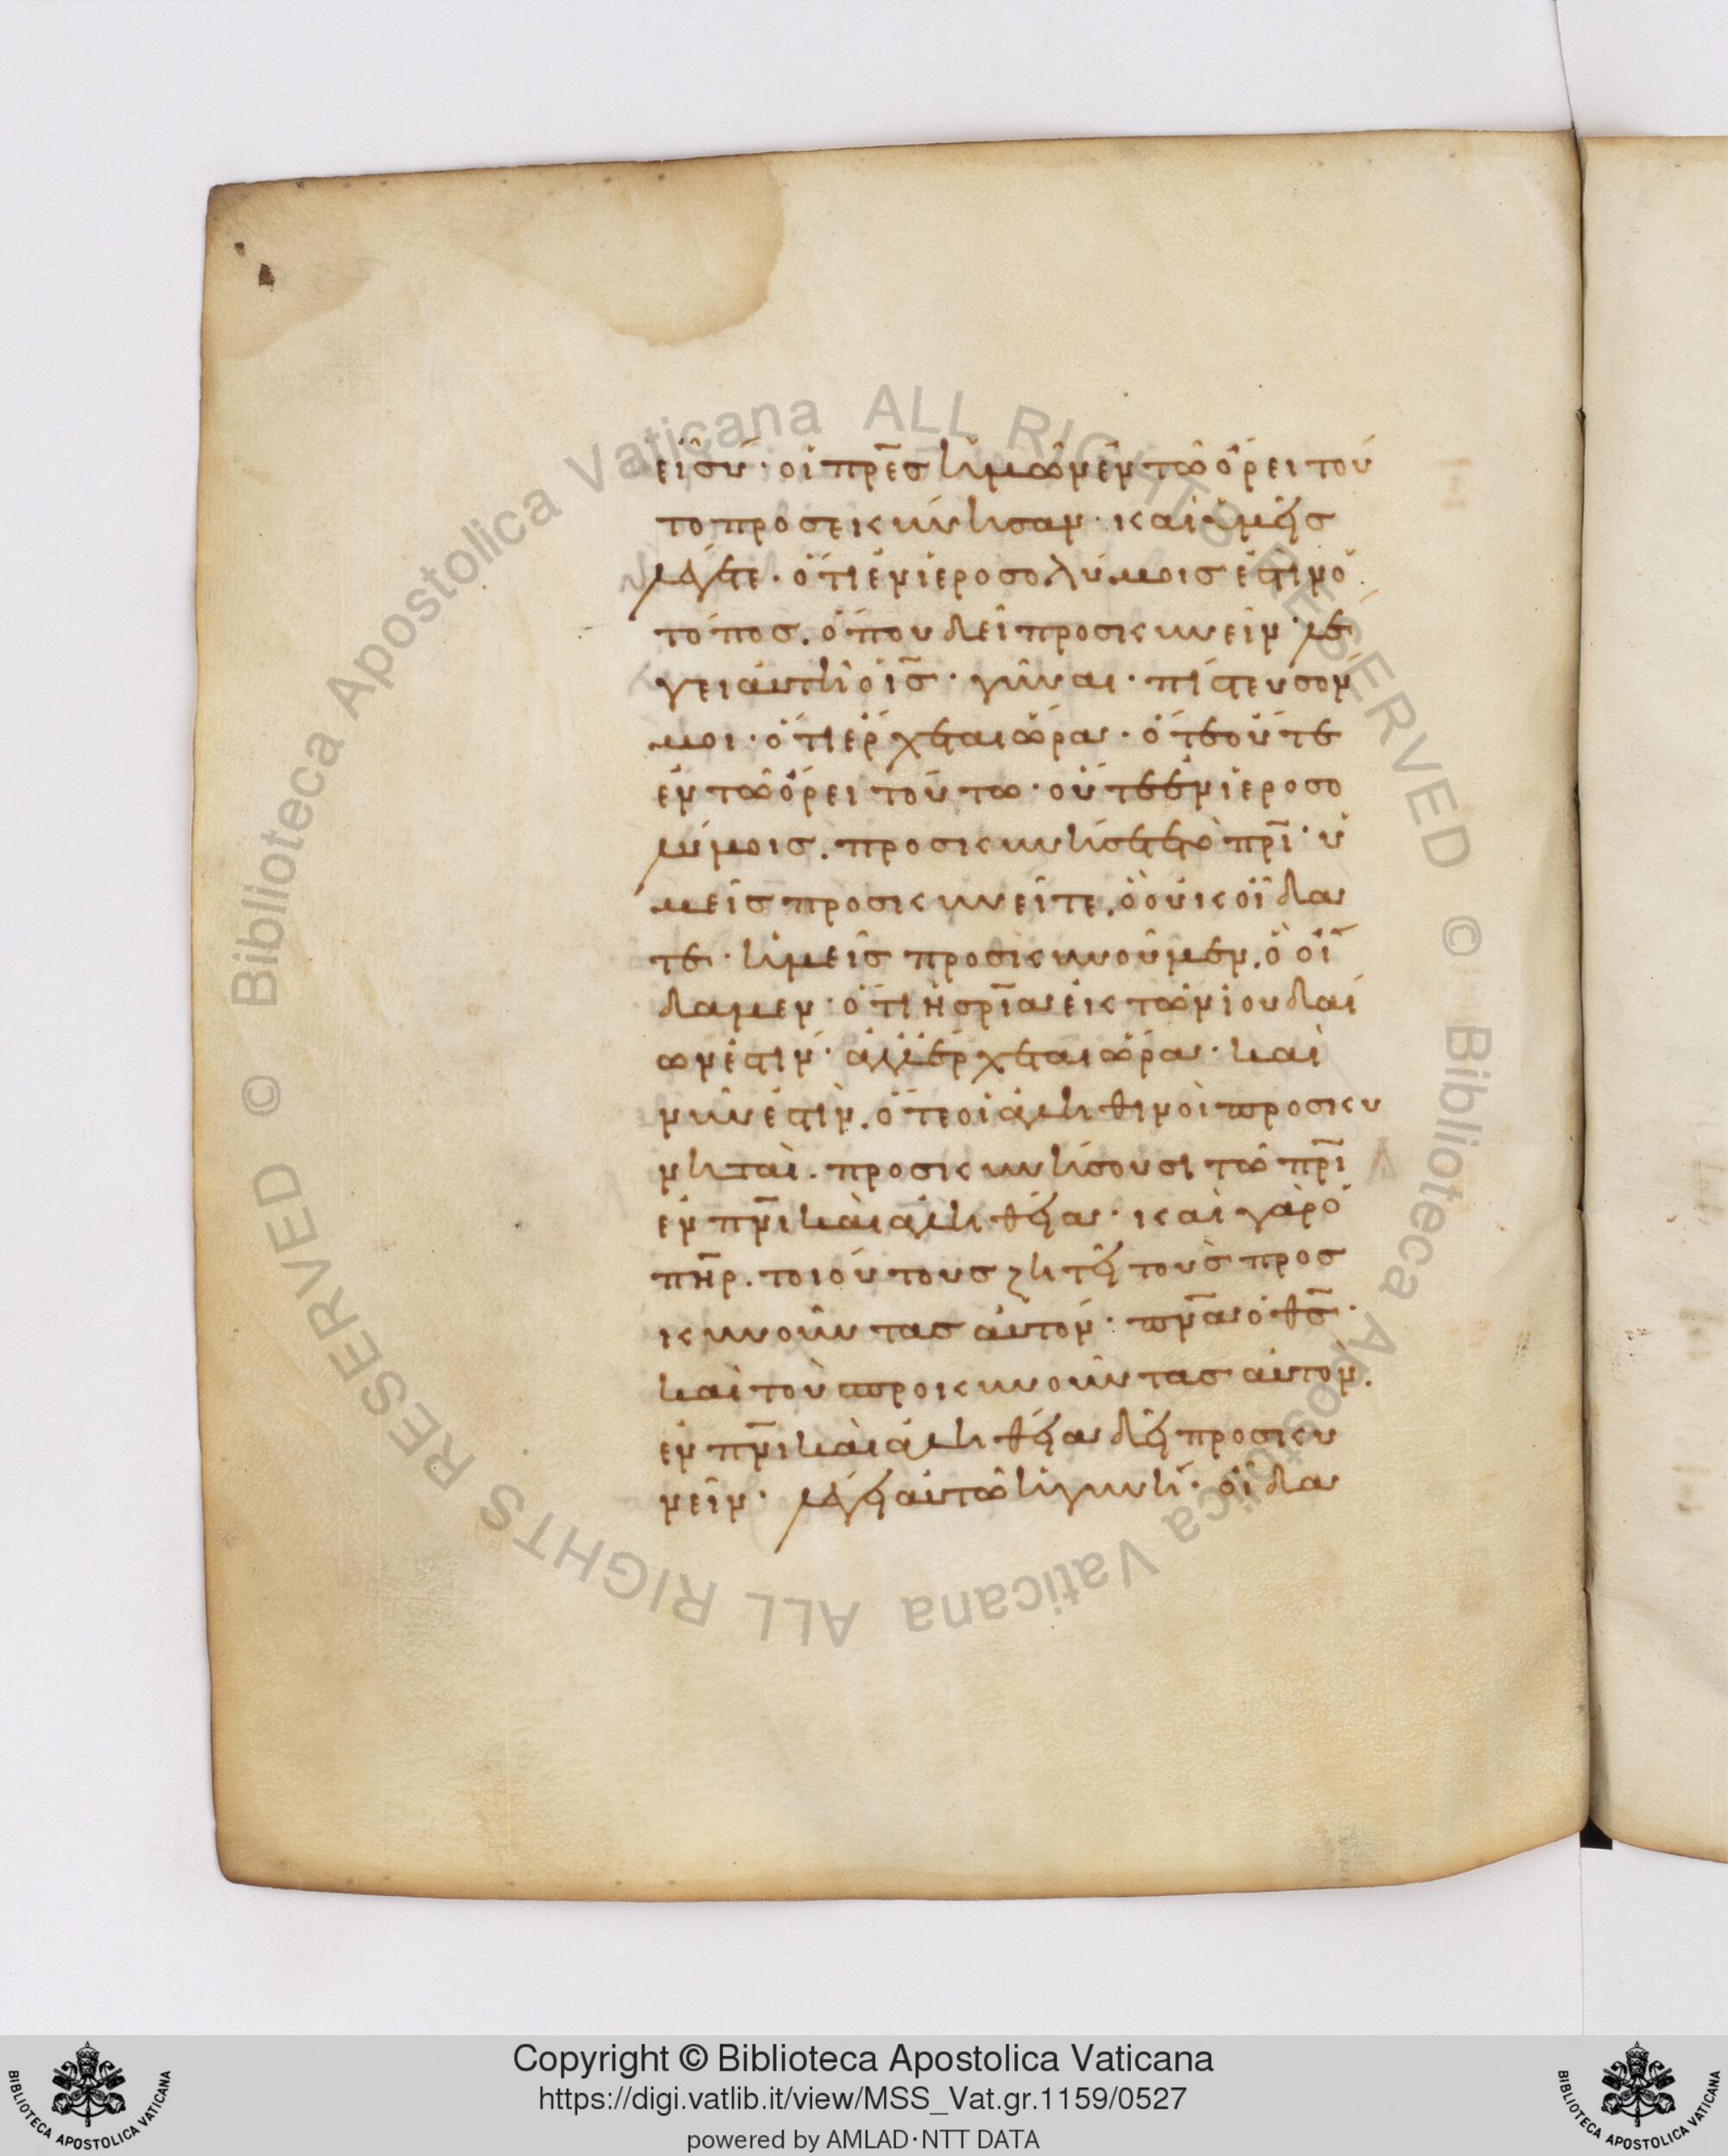 εἶ σύ· οἱ πρ̅ες ἡμῶν ἐν τῶ ὄρει τού
το προσεκύνησαν· καὶ ὑμεῖς
λέγετε· ὅτι ἐν ἱεροσολύμοις ἐστὶν ὁ
τόπος. ὅπου δεῖ προσκυνεῖν· λέ
γει αὐτῆ ὁ ι̅ς· γύναι· πίστευσόν
μοι· ὅτι ἔρχεται ὥρα· ὅτε οὔτε
ἐν τῶ ὄρει τούτω· οὔτε ἐν ἱεροσο
λύμοις. προσκυνήσετε τῶ πρ̅ι· ὑ
μεῖς προσκυνεῖτε. ὃ οὐκ οἴδα
τε· ἡμεῖς προσκυνοῦμεν. ὃ οἴ
δαμεν· ὅτι ἡ σρ̅ια ἐκ τῶν ἰουδαί
ων ἐστίν· ἀλλ' ἔρχεται ὥρα· καὶ
νῦν ἐστὶν. ὅτε οἱ ἀληθινοὶ προσκυ
νηταὶ. προσκυνήσουσι τῶ πρ̅ι
ἐν πν̅ι καὶ ἀληθεία· καὶ γὰρ ὁ
πη̅ρ. τοιούτους ζητεῖ τοὺς προσ
κυνοῦντας αὐτόν· πν̅α ὁ θ̅ς·
καὶ τοὺ προικυνοῦντας αὐτον.
ἐν πν̅ι καὶ ἀληθεία δεῖ προσκυ
νεῖν· λέγει αὐτῶ ἡ γυνή· οἶδα
Copyright © Biblioteca Apostolica Vaticana
https://digi.vatlib.it/view/MSS_Vat.gr.1159/0527
powered by AMLAD·NTT DATA
BIBLIOTECA APOSTOLICA VATICANA
BIBLIOTECA APOSTOLICA VATICANA
© Biblioteca Apostolica Vaticana ALL RIGHTS RESERVED
© Biblioteca Apostolica Vaticana ALL RIGHTS RESERVED